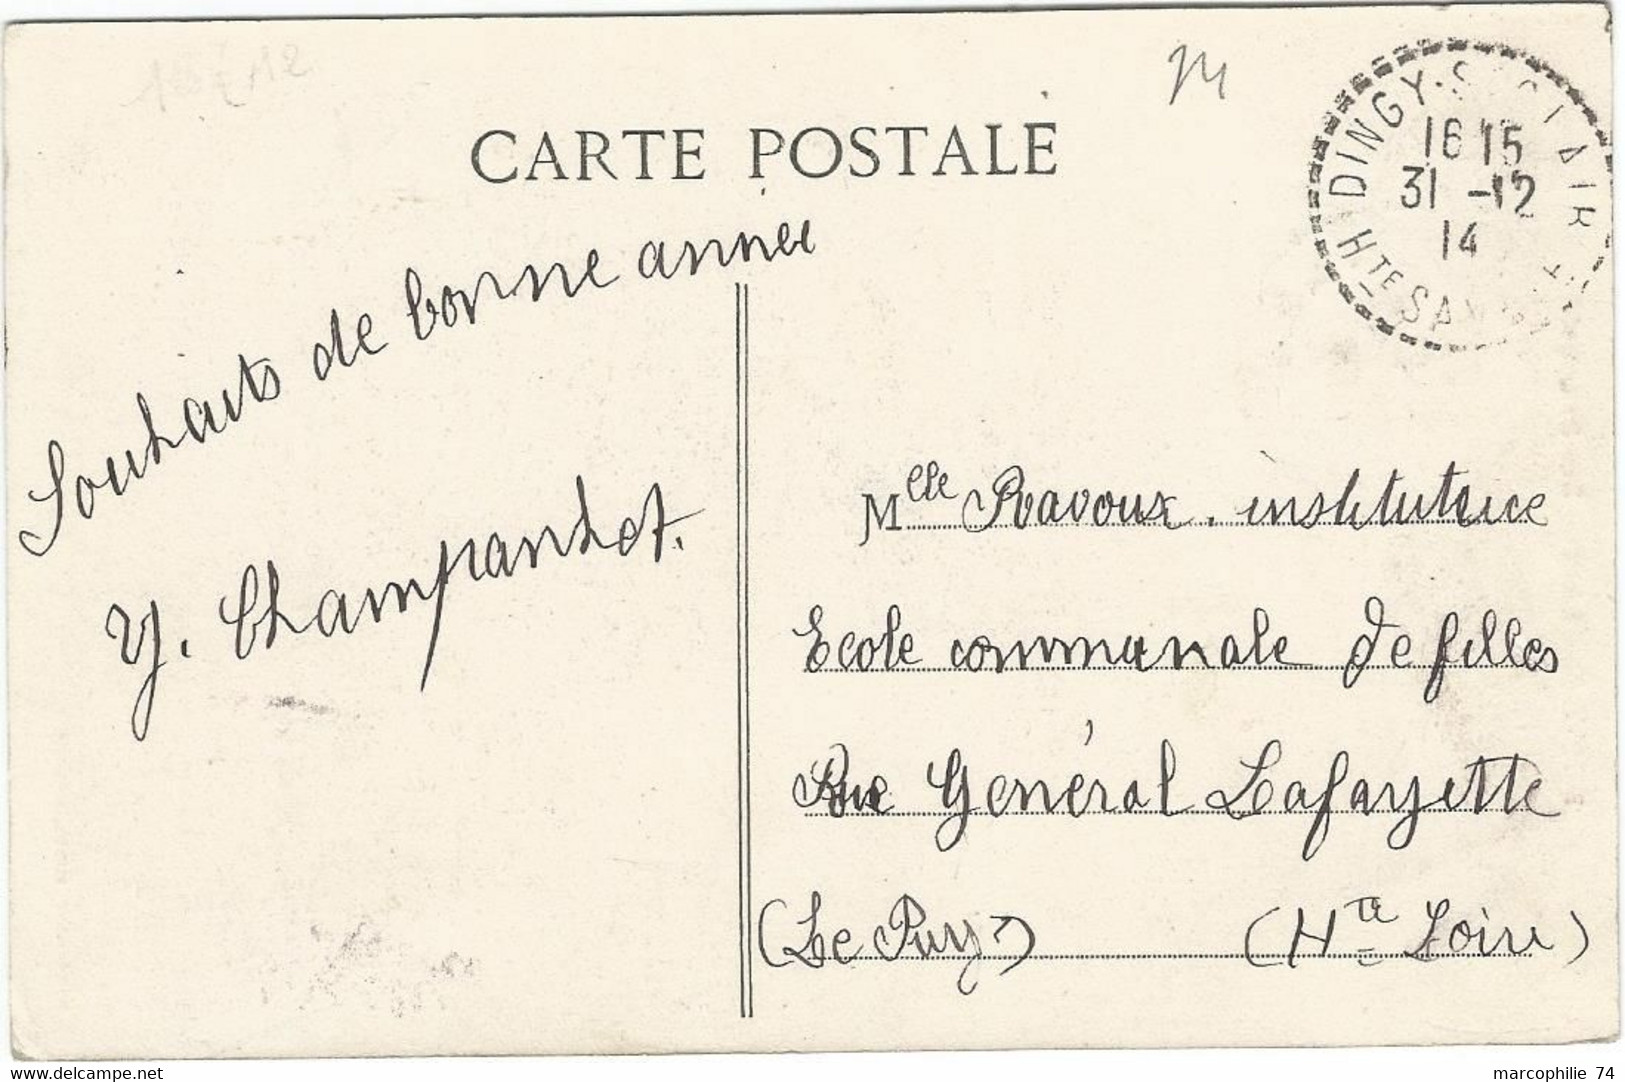 CARTE POSTALE
DINGY-ST CLAIR
16 15
31 -12
14
HTE SAVOIE
Souhaits de bonne année
Y. Champanhet.
Melle Ravoux. institutrice
Ecole communale de filles
Rue Général Lafayette
(Le Puy)
(Hte Loire)
delcampe.net
marcophilie 74